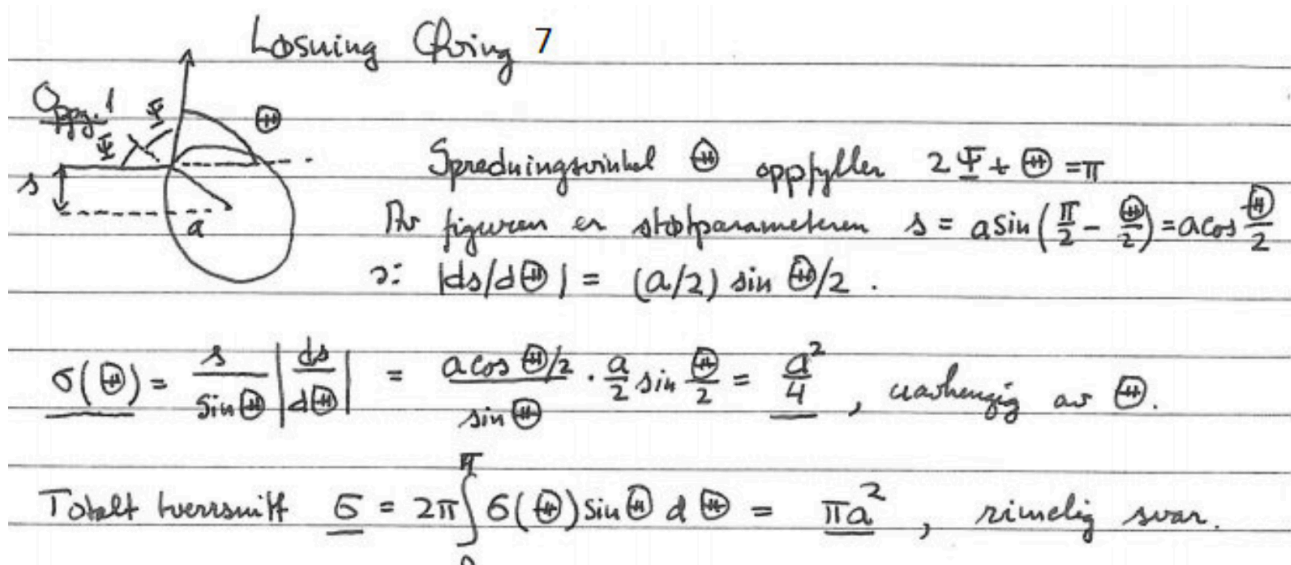 Løsning Øving 7
Oppg. 1
Ψ
Ψ
Θ
s
a
Spredningsvinkel Θ oppfyller 2Ψ + Θ = π
Av figuren er støtparameteren s = a sin(π/2 - Θ/2) = a cos Θ/2
ɔ: |ds/dΘ| = (a/2) sin Θ/2 .
σ(Θ) = s/sinΘ |ds/dΘ| = a cos Θ/2 / sin Θ · a/2 sin Θ/2 = a²/4 , uavhengig av Θ.
Totalt tverrsnitt σ = 2π ∫₀^π σ(Θ) sinΘ dΘ = πa² , rimelig svar.